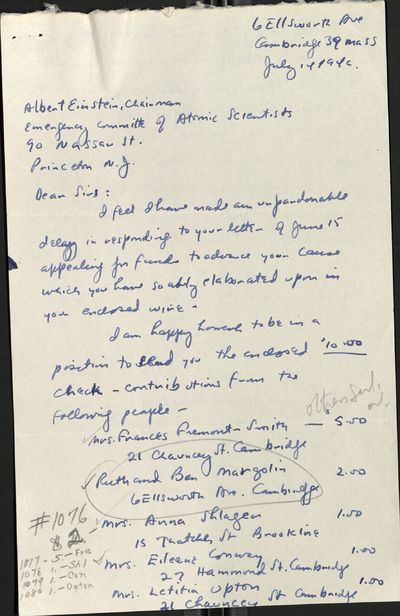 6 Ellsworth Ave
Cambridge 39 Mass
July 14 194
Albert Einstein, Chairman
Emergency Committe of Atomic Scientists
90 Nassau St.
Princeton N.J.
Dear Sirs:
I feel I have made an unpardonable
delay in responding to your letter of June 15
appealing for funds to advance your cause
which you have so ably elaborated upon in
your enclosed wire -
I am happy however to be in a
position to send you the enclosed $10.00
check - contributions from the
following people -
others sent
Mrs. Frances Fremont-Smith — $5.00
21 Chauncey St. Cambridge
Ruth and Ben Margolin 2.00
6 Ellsworth Ave. Cambridge
#1076
Mrs. Anna Shlager 1.00
15 Thatcher St Brookline
2
1077 - 5. - Fre
1078 1. - Shl
Mrs. Eileane Conway 1.00
27 Hammond St. Cambridge
1079 1. - Con
1080 1. - Upton
Mrs. Letitia Upton 1.00
21 Chauncey St Cambridge